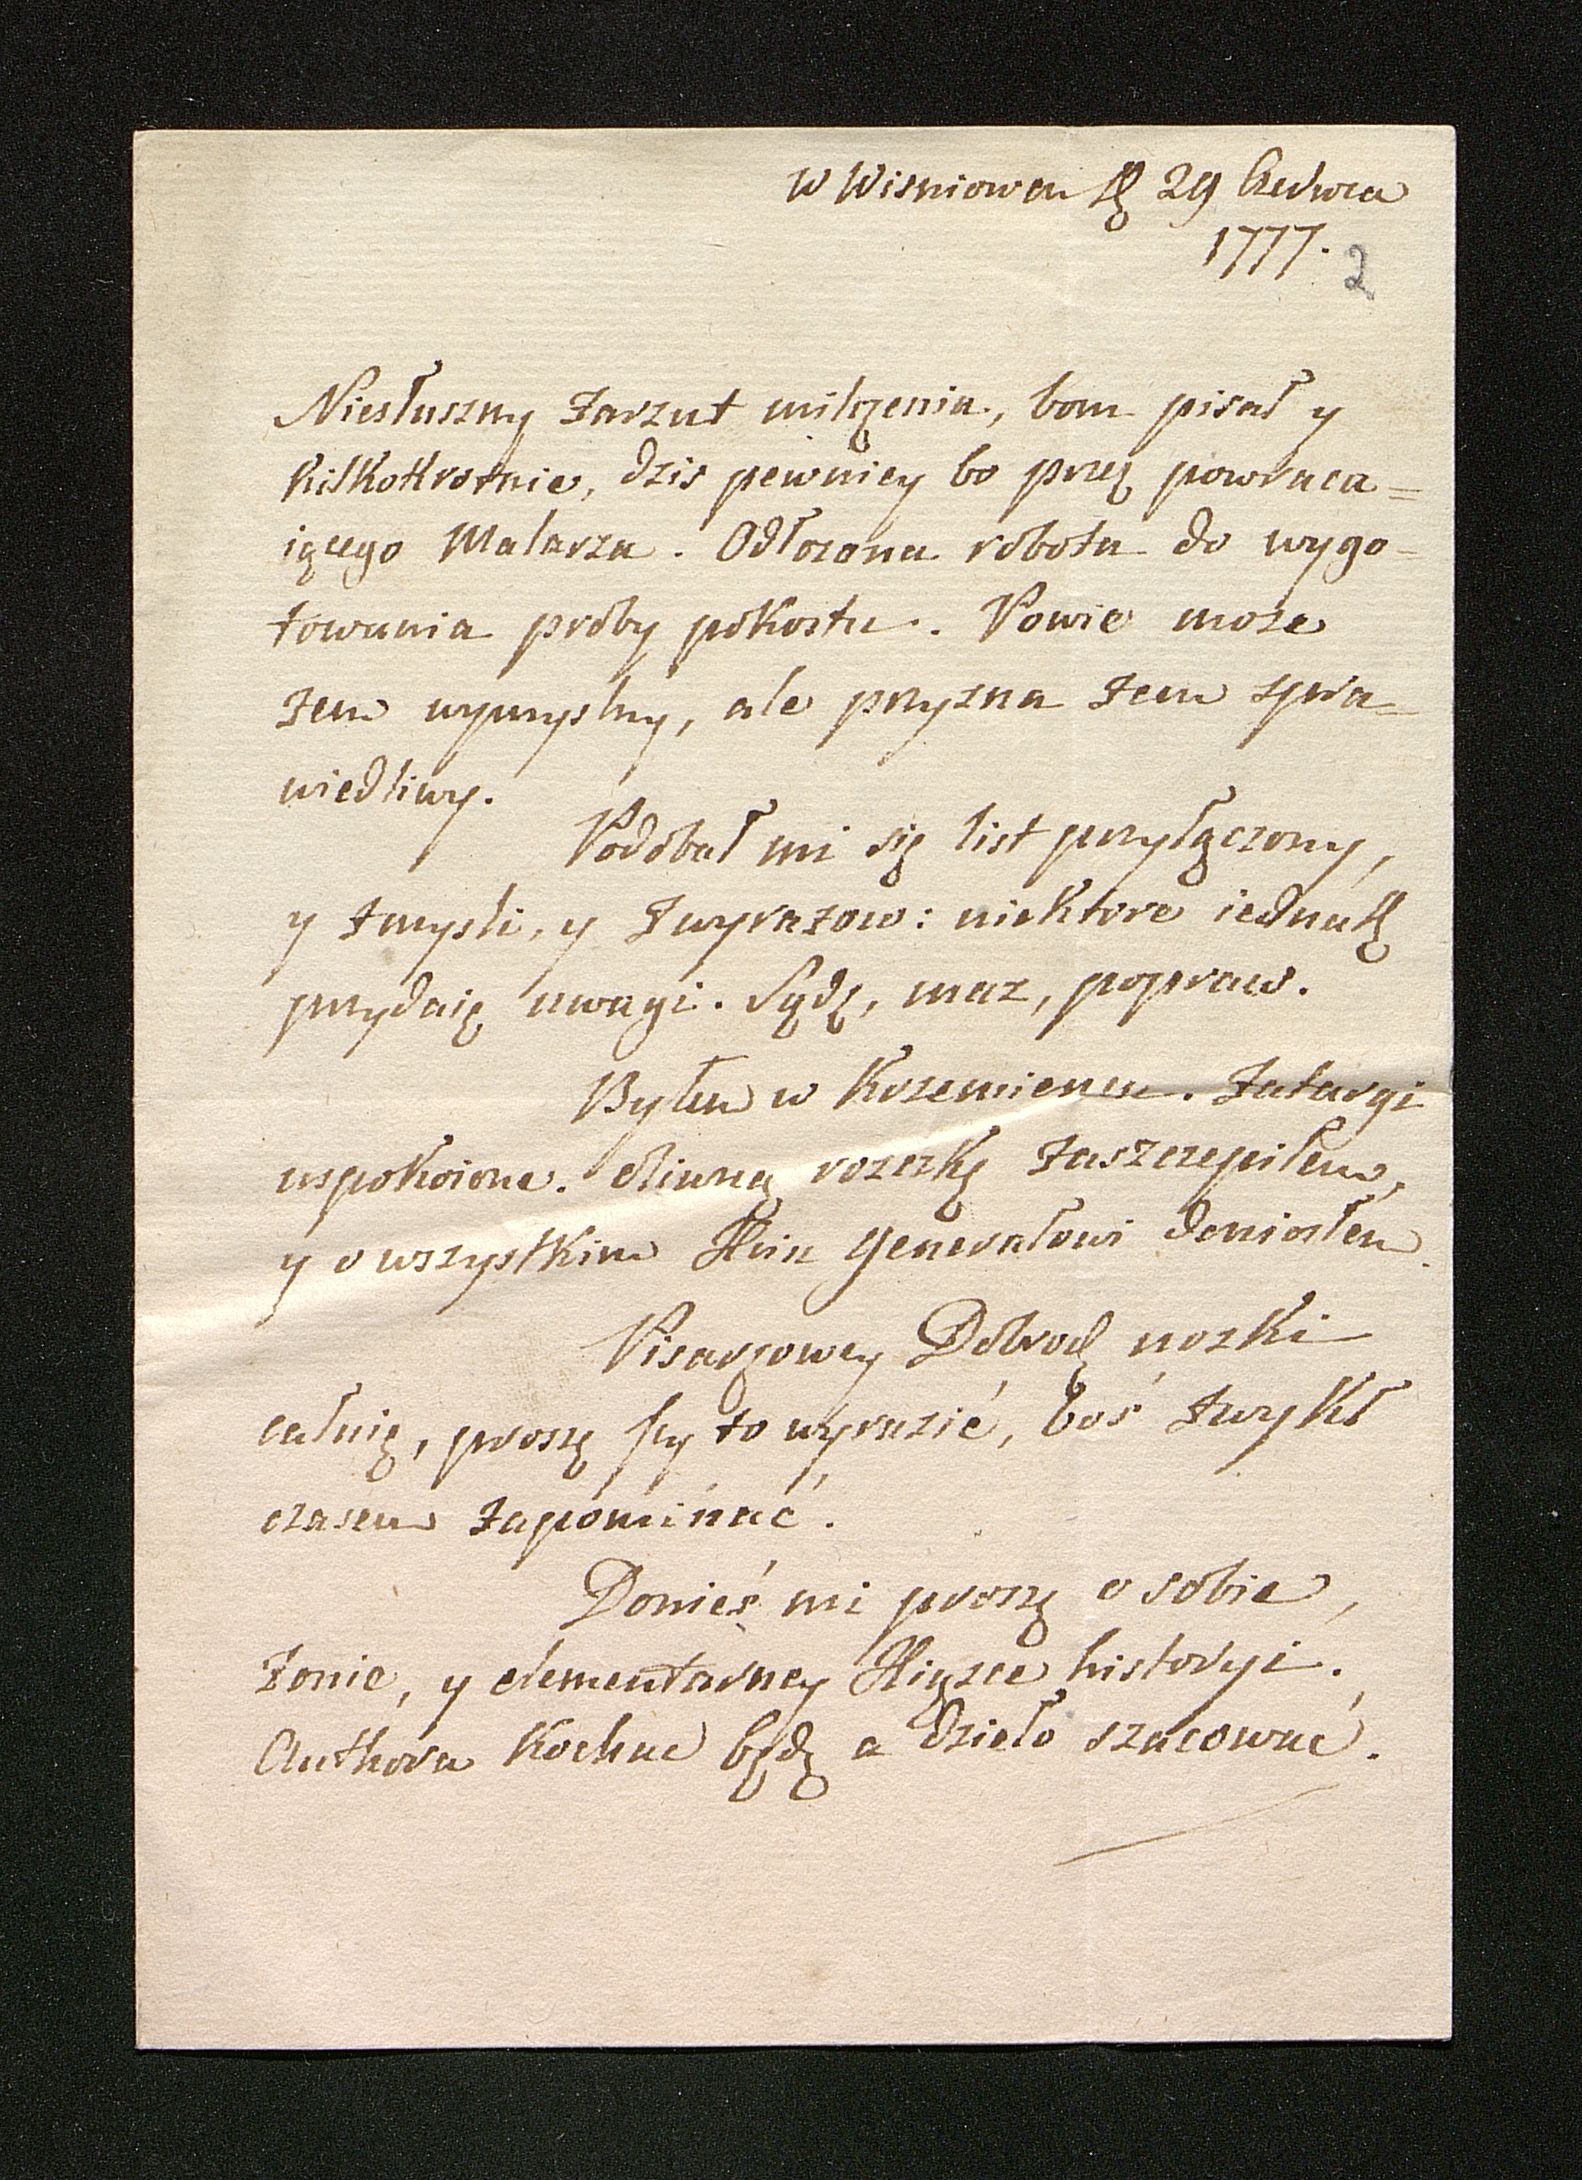 w Wisniowcu D 29 Czerwca
1777.
2
Niesłuszny zarzut milczenia, bom pisał y
kilkokrotnie, dzis pewniey bo przez powraca=
iącego Malarza. Odłozona robota do wygo-
towania proby pokostu. Powie moze
zem wymyslny, ale przyzna zem spra=
wiedliwy.
Podobał mi się list przyłączony,
y z mysli, y z wyrazow: niektore iednak
przydaię uwagi. Sądz, maz, popraw.
Byłem w Krzemiencu. Zatargi
uspokoione. Oliwną rozczkę zaszczepiłem,
y o wszystkim Xciu Generałowi doniosłem.
Pisarzowey Dobrodz nozki
całuię, proszę Jey to wyrazić, boś zwykł
czasem zapominać.
Donieś mi proszę o sobie,
zonie, y elementarney Xiązce historyi.
Authora kochac będę a dzieło szacować.